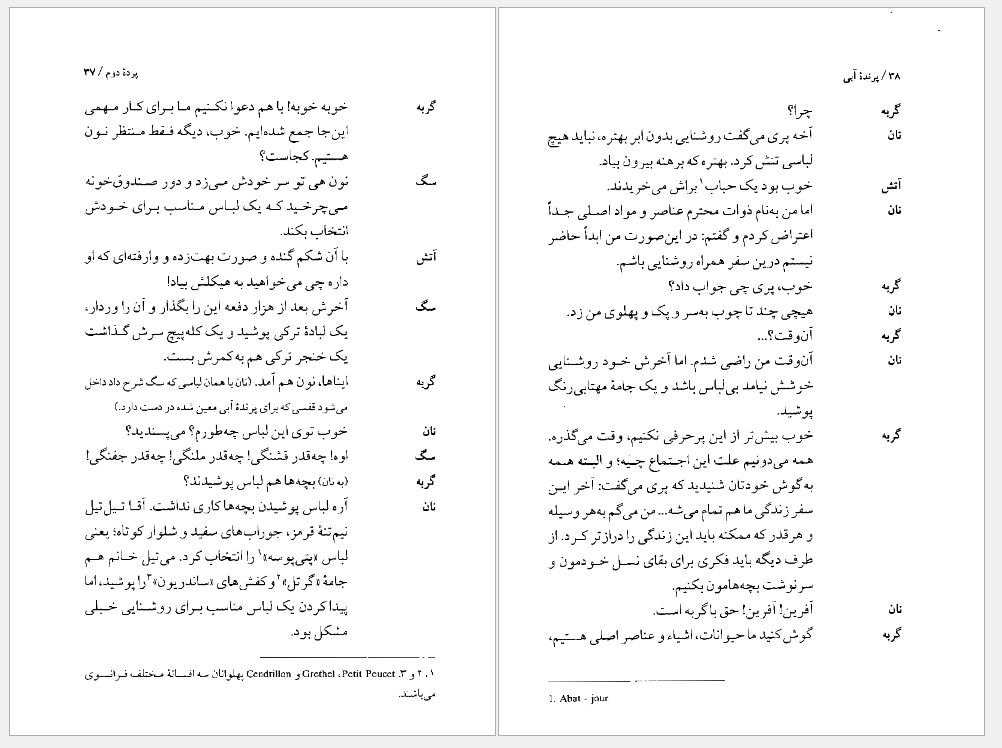 پردهٔ دوم / ۳۷
گربه خوبه خوبه! با هم دعوا نکنیم ما برای کار مهمی
این‌جا جمع شده‌ایم. خوب، دیگه فقط منتظر نون
هستیم. کجاست؟
سگ نون هی تو سر خودش می‌زد و دور صندوق‌خونه
می‌چرخید که یک لباس مناسب برای خودش
انتخاب بکند.
آتش با آن شکم گنده و صورت بهت‌زده و وارفته‌ای که او
داره چی می‌خواهید به هیکلش بیاد!
سگ آخرش بعد از هزار دفعه این را بگذار و آن را وردار،
یک لبادهٔ ترکی پوشید و یک کله‌پیچ سرش گذاشت
یک خنجر ترکی هم به کمرش بست.
گربه ایناها، نون هم آمد. (نان با همان لباسی که سگ شرح داد داخل
می‌شود قفسی که برای پرندهٔ آبی معین شده در دست دارد.)
نان خوب توی این لباس چه‌طورم؟ می‌پسندید؟
سگ اوه! چه‌قدر قشنگی! چه‌قدر ملنگی! چه‌قدر جفنگی!
گربه (به نان) بچه‌ها هم لباس پوشیدند؟
نان آره لباس پوشیدن بچه‌ها کاری نداشت. آقا تیل‌تیل
نیم‌تنهٔ قرمز، جوراب‌های سفید و شلوار کوتاه؛ یعنی
لباس «پتی‌پوسه»۱ را انتخاب کرد. می‌تیل خانم هم
جامهٔ «گرتل»۲ و کفش‌های «ساندریون»۳ را پوشید، اما
پیدا کردن یک لباس مناسب برای روشنایی خیلی
مشکل بود.
۱، ۲ و ۳. Petit Poucet، Grethel و Cendrillon پهلوانان سه افسانهٔ مختلف فرانسوی
می‌باشند.
۳۸ / پرندهٔ آبی
گربه چرا؟
نان آخه پری می‌گفت روشنایی بدون ابر بهتره، نباید هیچ
لباسی تنش کرد. بهتره که برهنه بیرون بیاد.
آتش خوب بود یک حباب۱ براش می‌خریدند.
نان اما من به‌نام ذوات محترم عناصر و مواد اصلی جداً
اعتراض کردم و گفتم: در این‌صورت من ابداً حاضر
نیستم درین سفر همراه روشنایی باشم.
گربه خوب، پری چی جواب داد؟
نان هیچی چند تا چوب به‌سر و پک و پهلوی من زد.
گربه آن‌وقت؟...
نان آن‌وقت من راضی شدم. اما آخرش خود روشنایی
خوشش نیامد بی‌لباس باشد و یک جامهٔ مهتابی‌رنگ
پوشید.
گربه خوب بیش‌تر از این پرحرفی نکنیم، وقت می‌گذره.
همه می‌دونیم علت این اجتماع چیه؛ و البته همه
به‌گوش خودتان شنیدید که پری می‌گفت: آخر این
سفر زندگی ما هم تمام می‌شه... من می‌گم به‌هر وسیله
و هرقدر که ممکنه باید این زندگی را درازتر کرد. از
طرف دیگه باید فکری برای بقای نسل خودمون و
سرنوشت بچه‌هامون بکنیم.
نان آفرین! آفرین! حق با گربه است.
گربه گوش کنید ما حیوانات، اشیاء و عناصر اصلی هستیم،
1. Abat - jour